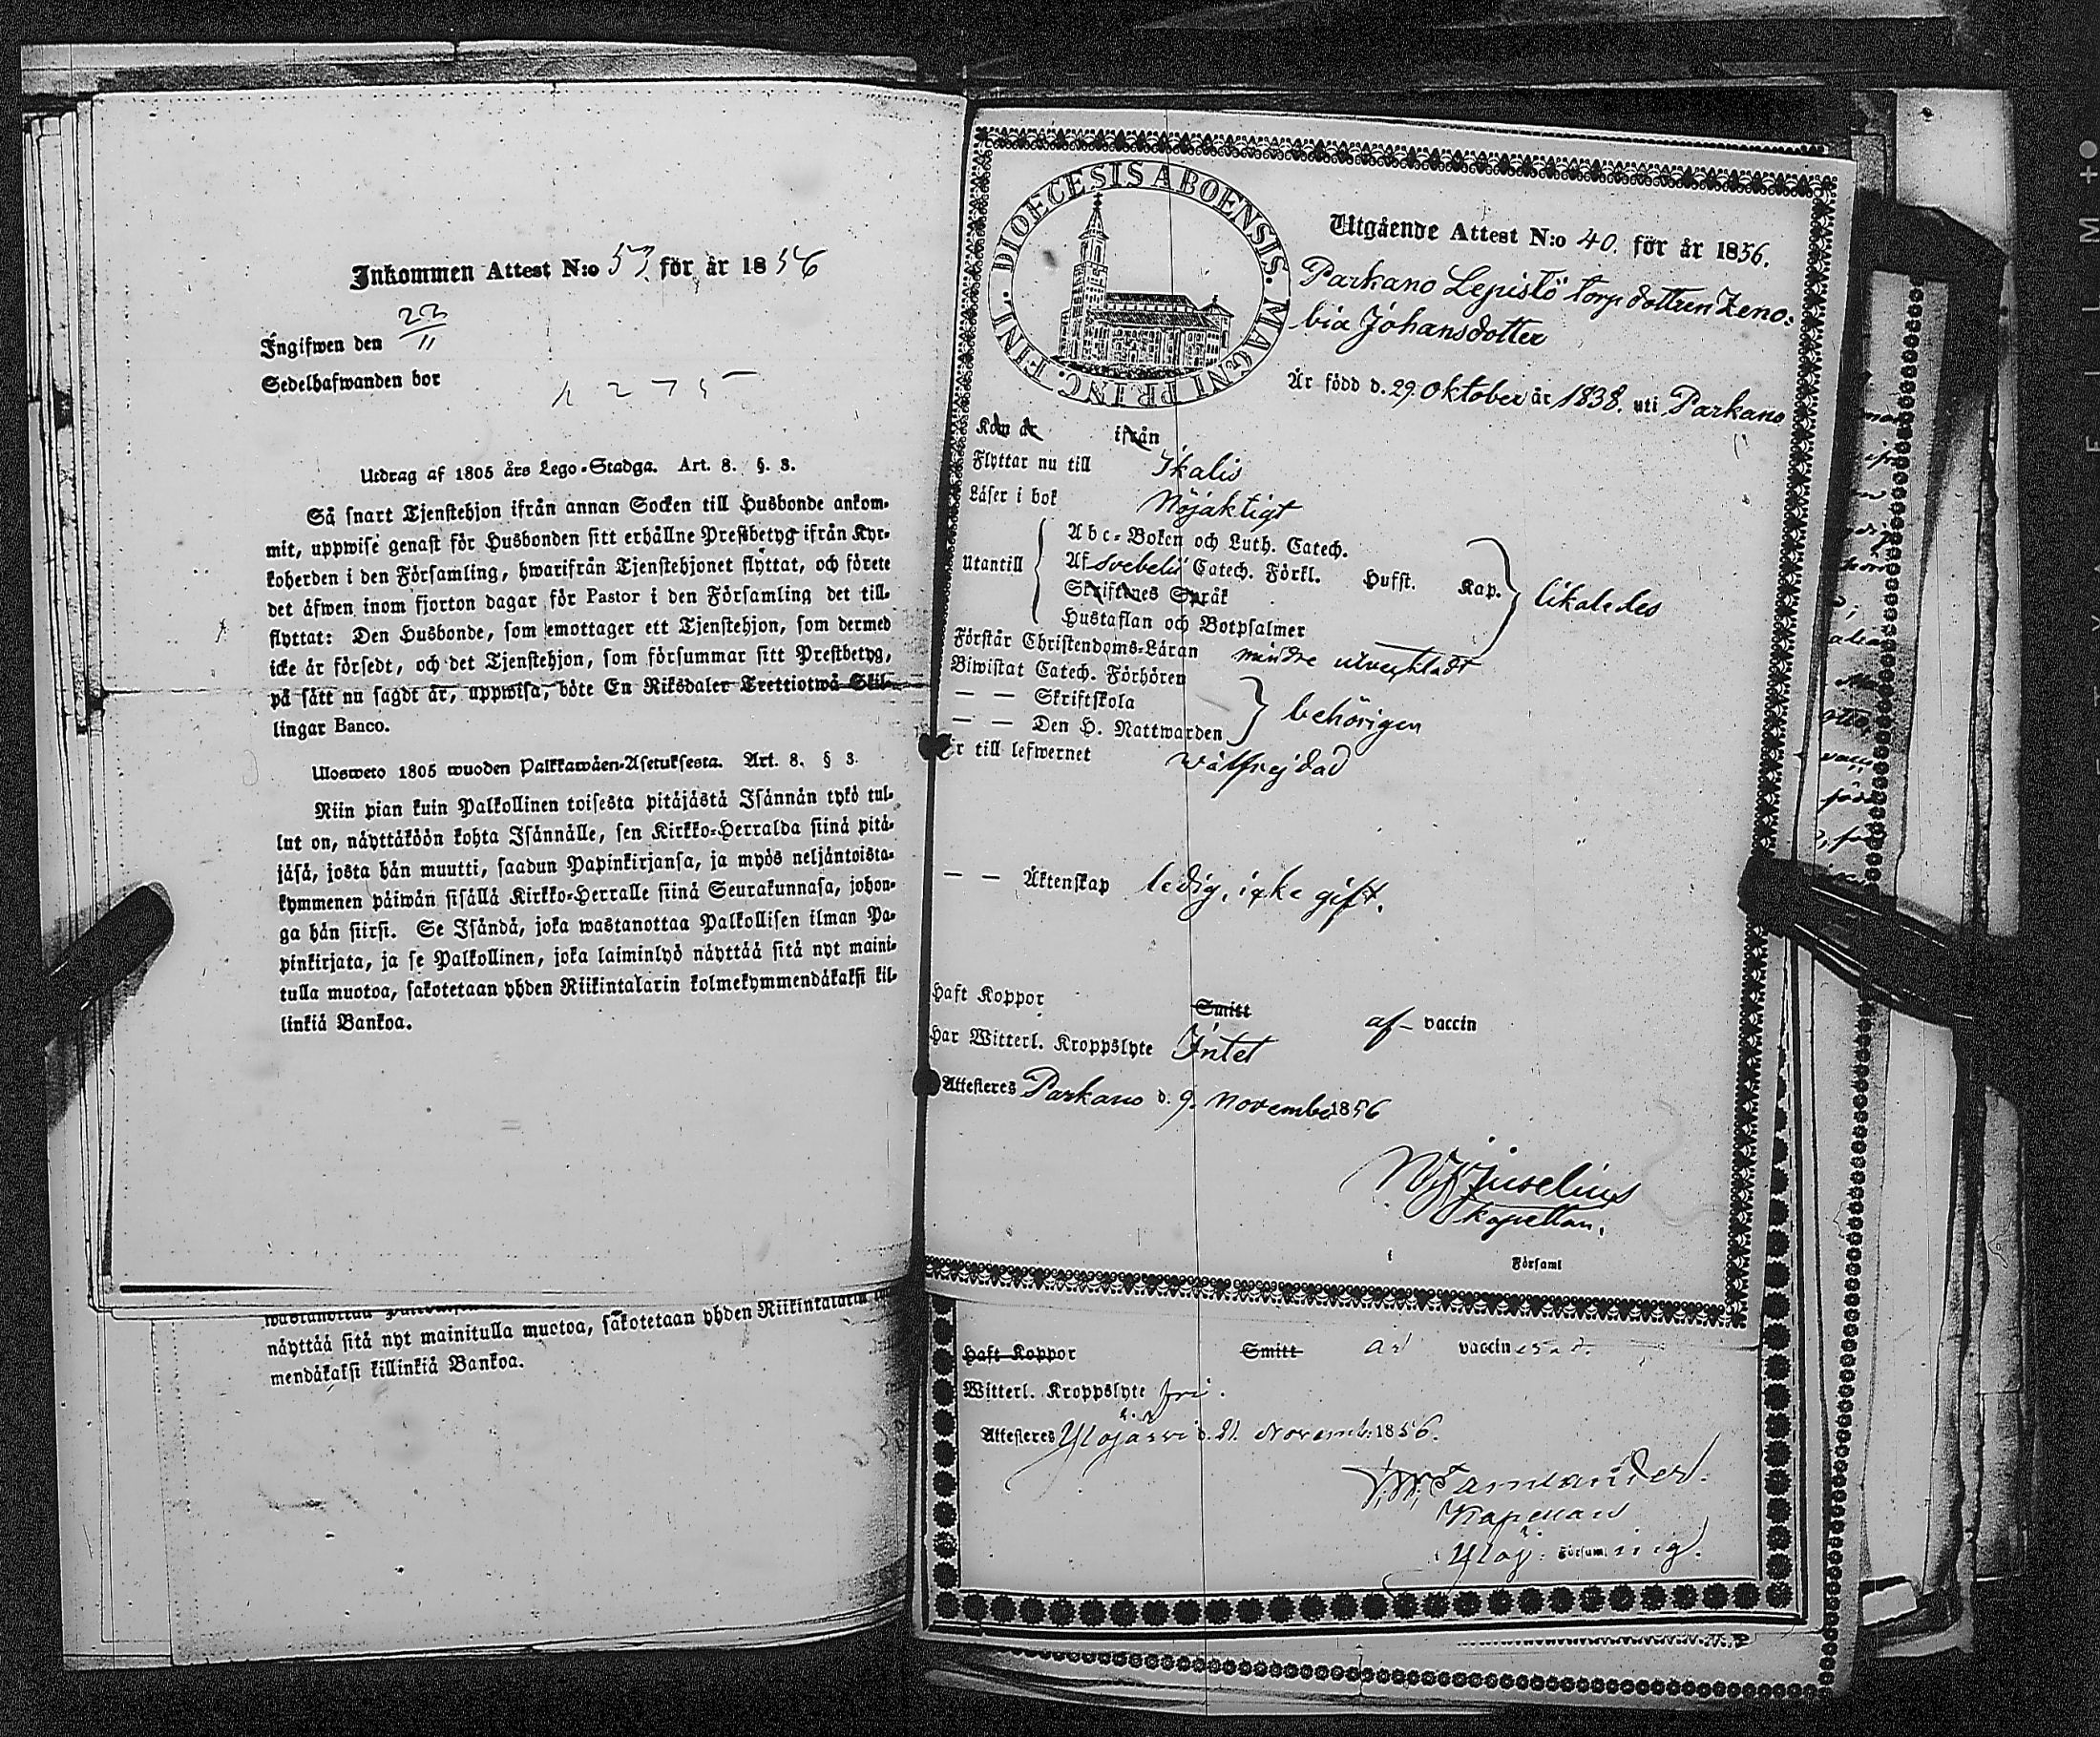 Inkommen Attest N:o 53 för år 1856
Ingifwen den 23/11
Sedelhafwanden bor
Utdrag af 1805 års Lego-Stadga. Art. 8. §. 3.
Så snart Tjenstehjon ifrån annan Socken till Husbonde ankom-
mit, uppwise genast för Husbonden sitt erhållne Prestbetyg ifrån Kyr-
koherden i den Församling, hwarifrån Tjenstehjonet flyttat, och förete
det äfwen inom fjorton dagar för Pastor i den Församling det till-
flyttat: Den Husbonde, som emottager ett Tjenstehjon, som dermed
icke är försedt, och det Tjenstehjon, som försummar sitt Prestbetyg,
på sätt nu sagdt är, uppwisa, böte En Riksdaler Trettiotwå Skil-
lingar Banco.
Ulosweto 1805 wuoden Palkkawäen-Asetuksesta. Art. 8. § 3.
Niin pian kuin Palkollinen toisesta pitäjästä Isännän tykö tul-
lut on, näyttäköön kohta Isännälle, sen Kirkko-Herralda siinä pitä-
jäsä, josta hän muutti, saadun Papinkirjansa, ja myös neljäntoista-
kymmenen päiwän sisällä Kirkko-Herralle siinä Seurakunnasa, johon-
ga hän siirsi. Se Isändä, joka wastanottaa Palkollisen ilman Pa-
pinkirjata, ja se Palkollinen, joka laiminlyö näyttää sitä nyt maini-
tulla muotoa, sakotetaan yhden Riikintalarin kolmekymmendäkaksi kil-
linkiä Bankoa.
näyttää sitä nyt mainitulla muotoa, sakotetaan yhden Riikintalarin
mendäkaksi killinkiä Bankoa.
DIOECESIS ABOENSIS. MAGNI PRINC. FINL.
Utgående Attest N:o 40. för år 1856.
Parkano Lepistö torp dottren Zeno-
bia Johansdotter
Är född d. 29. Oktober år 1838. uti Parkano
Kom år ifrån
Flyttar nu till Ikalis
Läser i bok Nöjaktigt
Utantill
Abc-Boken och Luth. Catech.
Af Svebelii Catech. Förkl. Hufst. Kap. likaledes
Skriftenes Språk
Hustaflan och Botpsalmer
Förstår Christendoms-Läran mindre utveckladt
Biwistat Catech. Förhören
— — Skriftskola behörigen
— — Den H. Nattwarden
Är till lefwernet wälfrejdad
— — Äktenskap ledig, icke gift.
Haft Koppor Smitt af – vaccin
Har Witterl. Kroppslyte Intet
Attesteres Parkano d. 9. November 1856
Juselius
Kapellan.
i Församl
Haft Koppor Smitt vaccinerad.
Witterl. Kroppslyte fri.
Attesteres Ylöjärwi d. 21. Novemb. 1856.
Kapellan
Ylöj. Församling.